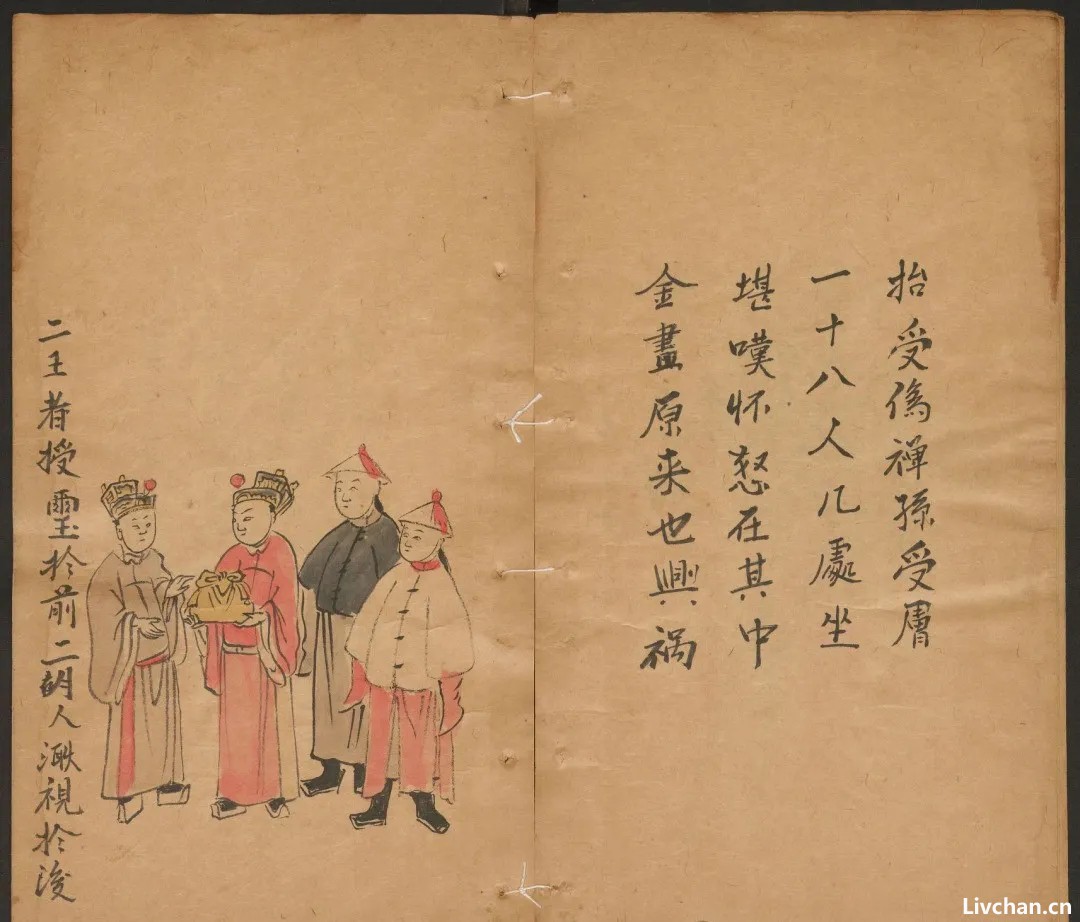 抬受僞禪孫受膚
一十八人几處坐
堪嘆怀怒在其中
金畫原来也興祸
二王者授璽於前二胡人視於後
Livchan.cn